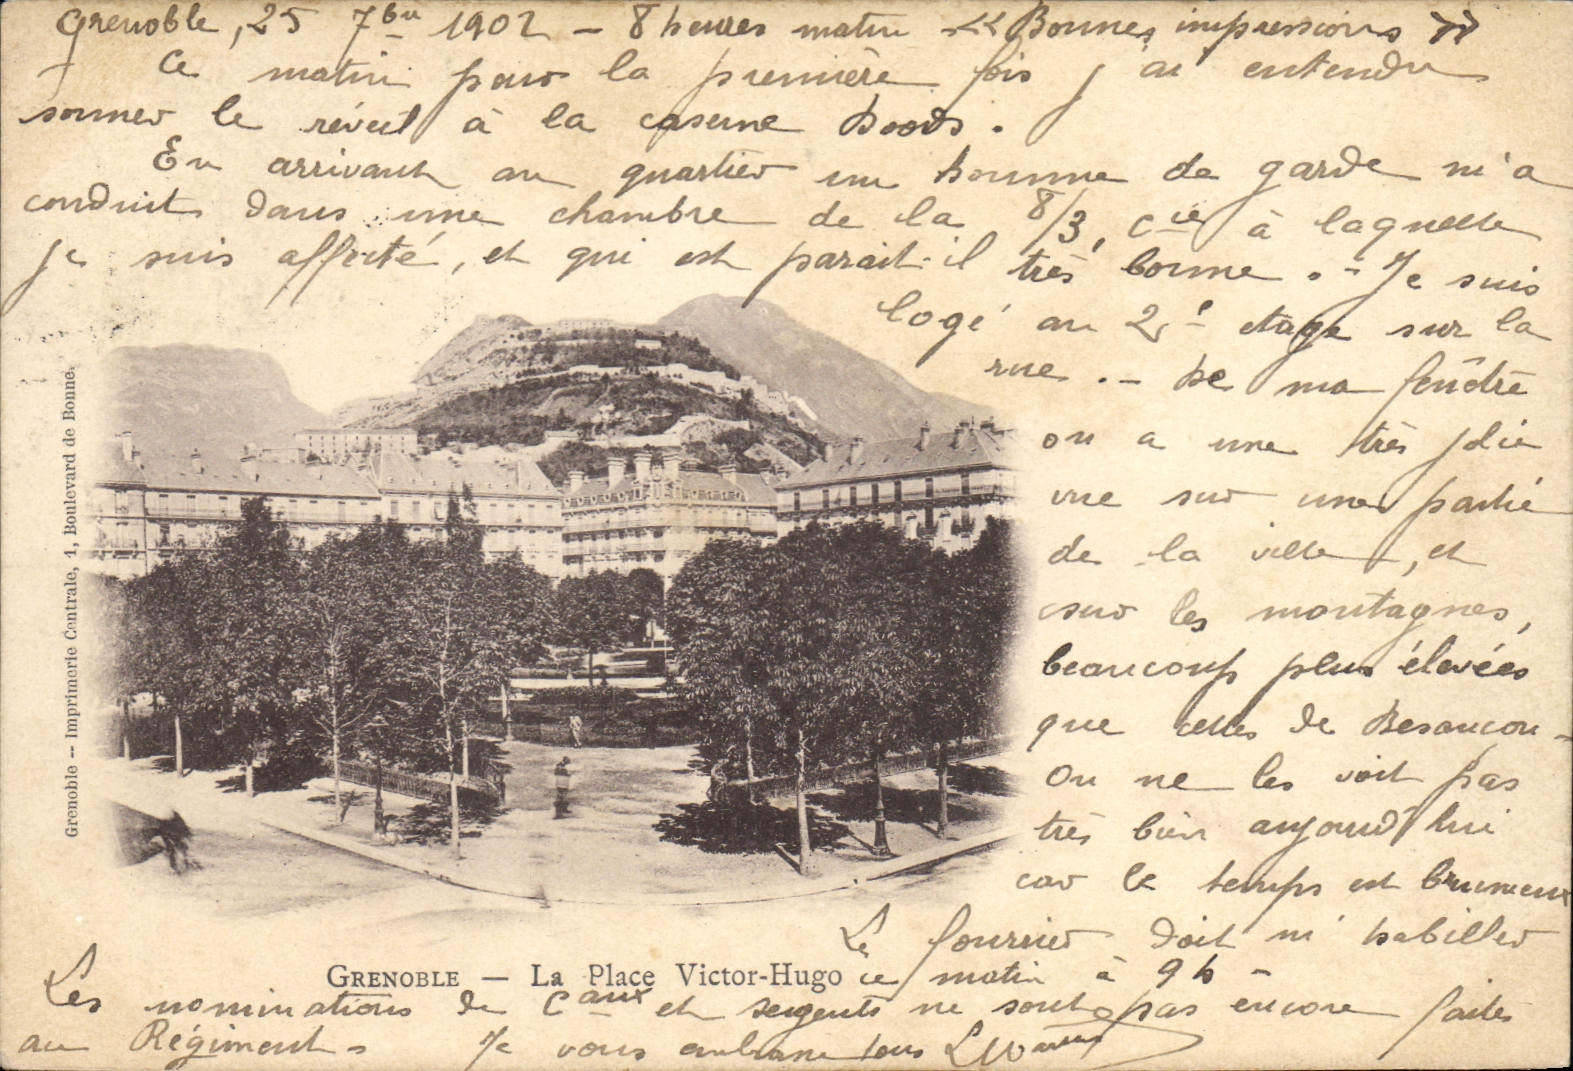 Grenoble, 25 7bre 1902 - 8 heures matin << Bonnes impressions >>
Ce matin pour la première fois j'ai entendu
sonner le réveil à la caserne
En arrivant au quartier un homme de garde m'a
conduit dans une chambre de la 8/3, Cie à laquelle
je suis affecté, et qui est parait-il très bonne. - Je suis
logé au 2e étage sur la
rue. - De ma fenêtre
on a une très jolie
vue sur une partie
de la ville, et
sur les montagnes,
beaucoup plus élevées
que celles de Besançon -
On ne les voit pas
très bien aujourd'hui
car le temps est brumeux
Le fourrier doit m'habiller
ce matin à 9h -
Les nominations de Caux et sergents ne sont pas encore faites
au Régiment. Je vous embrasse tous
GRENOBLE — La Place Victor-Hugo
Grenoble -- Imprimerie Centrale, 1, Boulevard de Bonne.